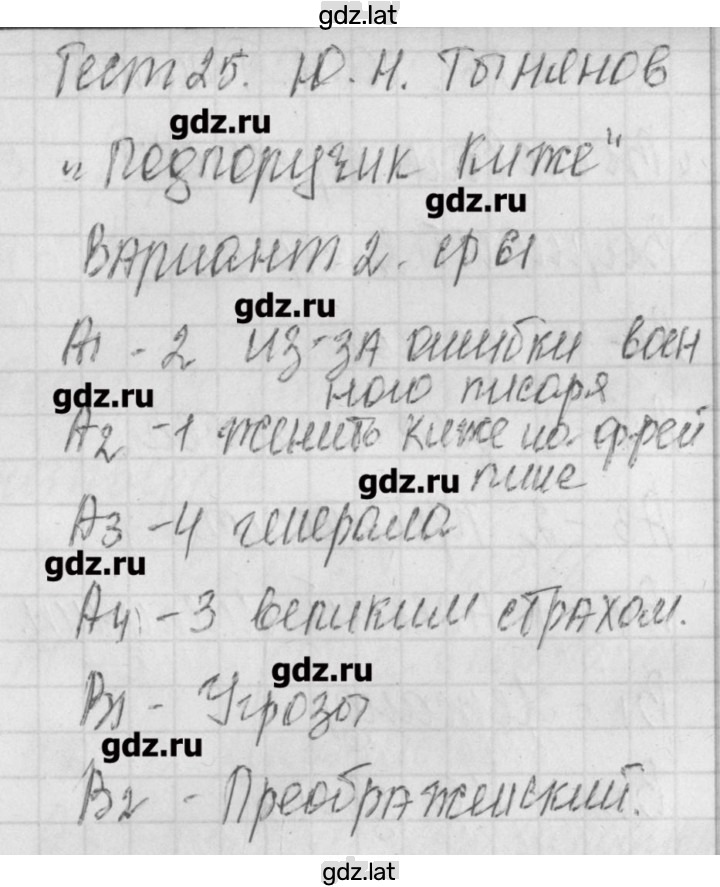 gdz.lat
Тест 25. Ю. Н. Тынянов
gdz.ru
"Подпоручик Киже"
gdz.ru
Вариант 2. ср 61
gdz.ru
А1 - 2 из-за ошибки воен
ного писаря
gdz.ru
А2 - 1 женить Киже на фрей
лине
gdz.ru
А3 - 4 генерала
gdz.ru
А4 - 3 великим страхом.
gdz.ru
В1 - Угрозы
gdz.ru
В2 - Преображенский.
gdz.lat